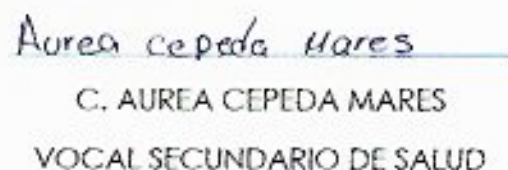 Aurea cepeda Mares
C. AUREA CEPEDA MARES
VOCAL SECUNDARIO DE SALUD